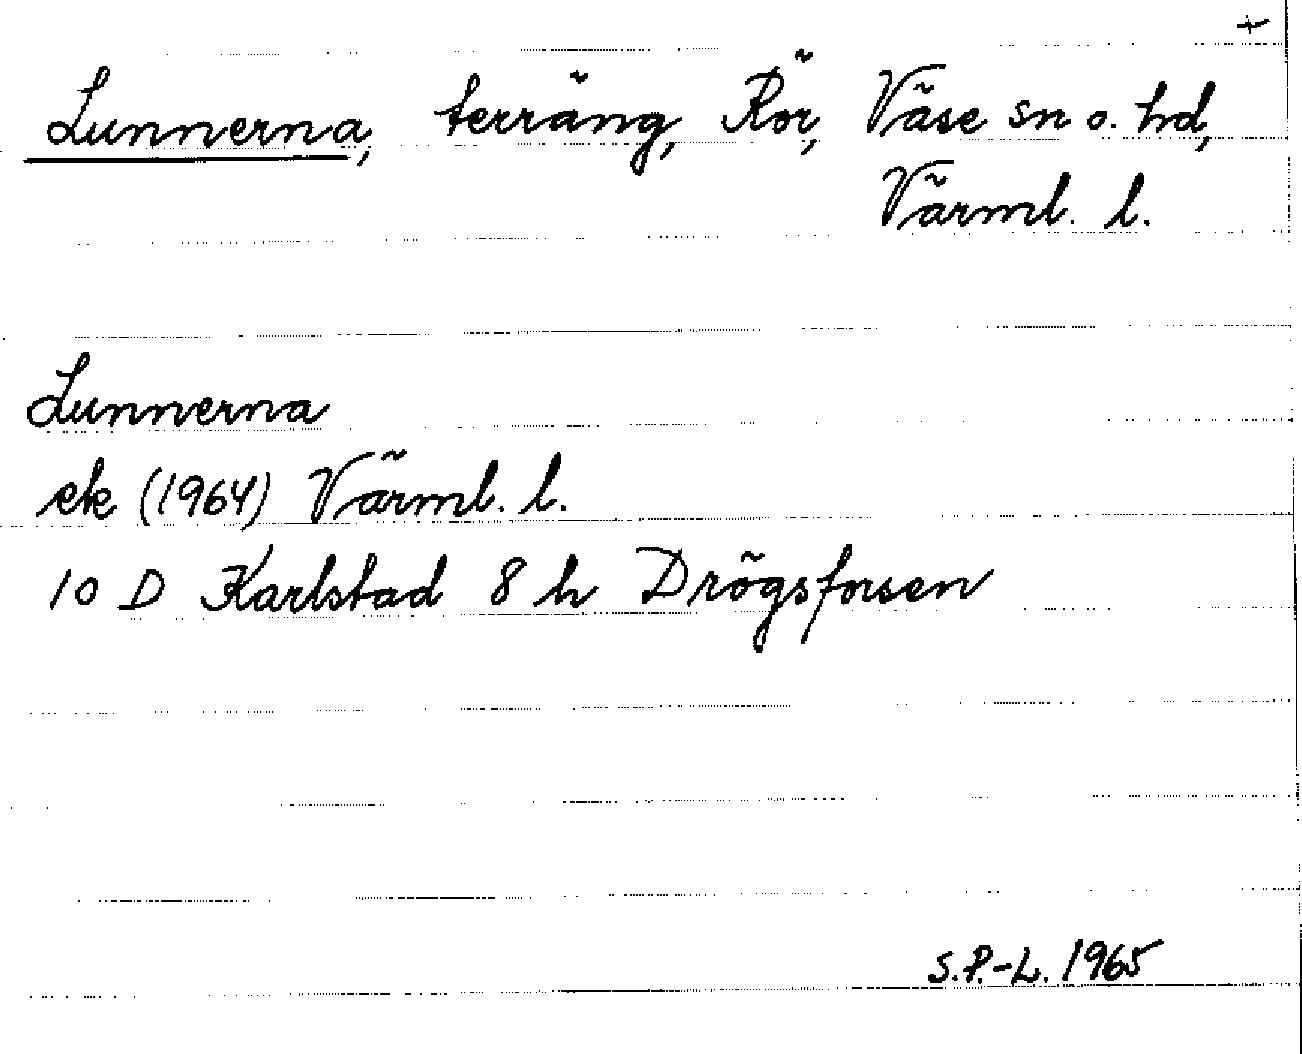 +
Lunnerna, terräng, Rör, Väse sn o. hd,
Värml. l.
Lunnerna
ek (1964) Värml. l.
10 D Karlstad 8 h Drögsforsen
S.P.-L. 1965